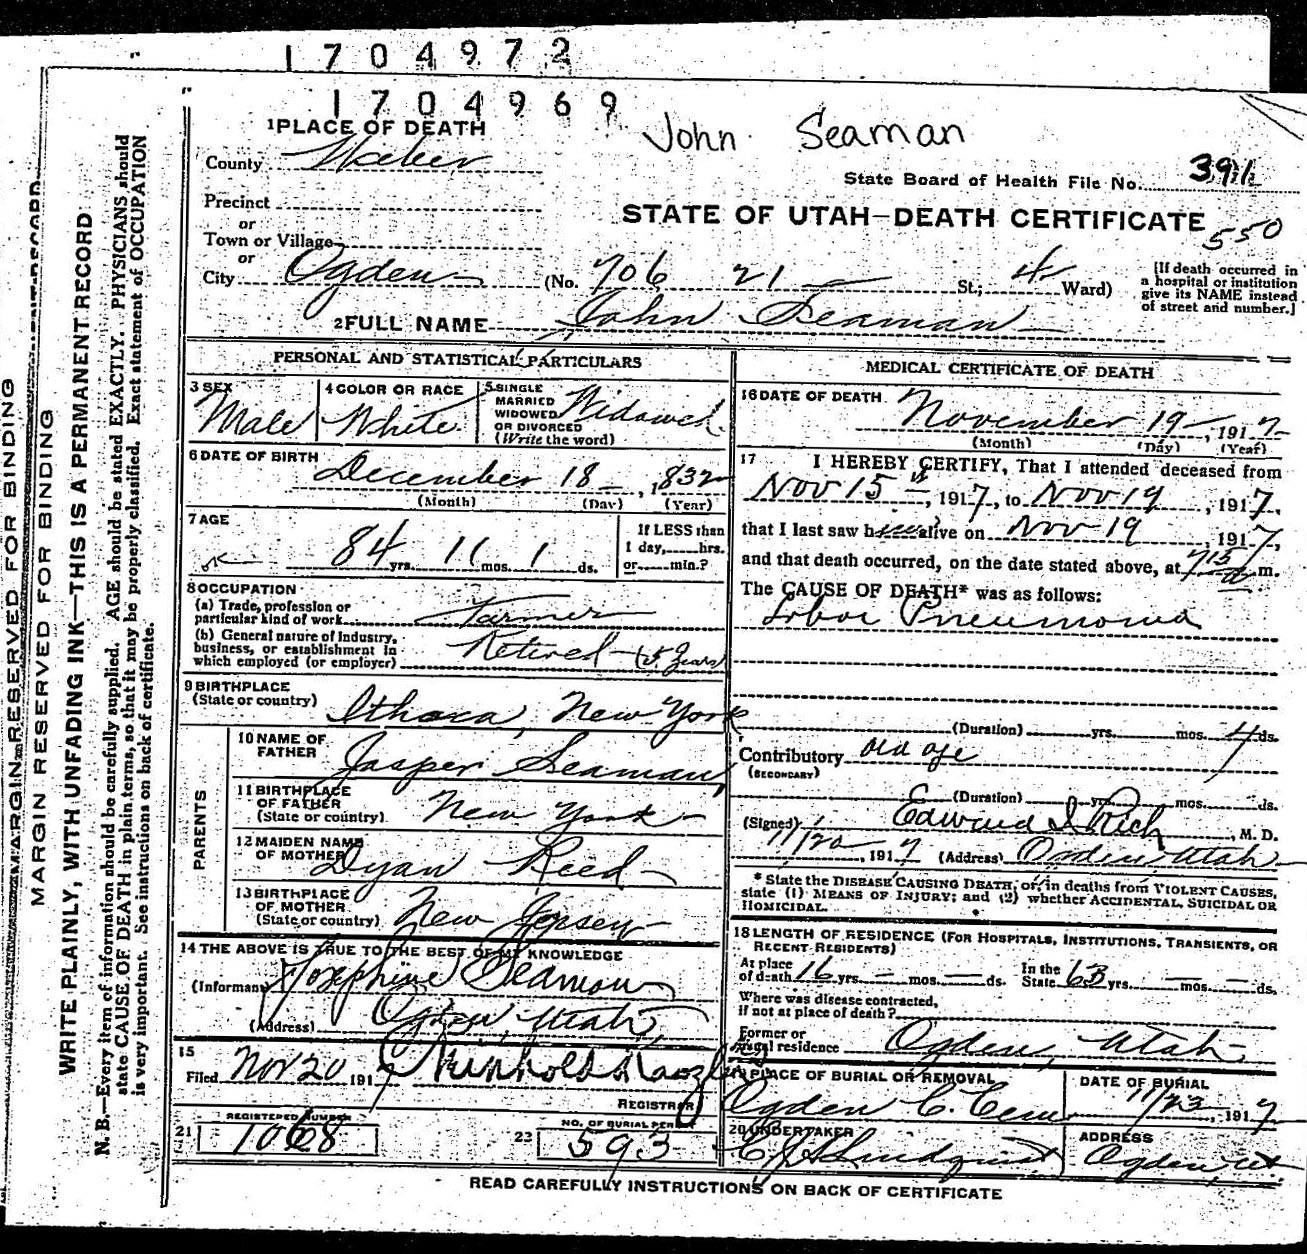 1704972
1704969
John Seaman
1 PLACE OF DEATH
County Weber
State Board of Health File No.
Precinct
or
Town or Village
STATE OF UTAH—DEATH CERTIFICATE
550
or
City Ogden (No. 706 21 St.; 4 Ward)
[If death occurred in
a hospital or institution
give its NAME instead
of street and number.]
2 FULL NAME John Seaman
PERSONAL AND STATISTICAL PARTICULARS
3 SEX Male
4 COLOR OR RACE White
5 SINGLE
MARRIED
WIDOWED
OR DIVORCED
(Write the word) Widowed
6 DATE OF BIRTH
December 18, 1832
(Month) (Day) (Year)
7 AGE
84 yrs. 11 mos. 1 ds.
If LESS than
1 day,......hrs.
or......min.?
8 OCCUPATION
(a) Trade, profession or
particular kind of work Farmer
(b) General nature of Industry,
business, or establishment in
which employed (or employer) Retired (5 Years)
9 BIRTHPLACE
(State or country) Ithaca, New York
PARENTS
10 NAME OF
FATHER Jasper Seaman
11 BIRTHPLACE
OF FATHER
(State or country) New York
12 MAIDEN NAME
OF MOTHER Dyan Reed
13 BIRTHPLACE
OF MOTHER
(State or country) New Jersey
14 THE ABOVE IS TRUE TO THE BEST OF MY KNOWLEDGE
(Informant) Josephine Seaman
(Address) Ogden, Utah
15
Filed Nov 20 1917
REGISTRAR
REGISTERED NUMBER
21 1068
NO. OF BURIAL PERMIT
22 593
MEDICAL CERTIFICATE OF DEATH
16 DATE OF DEATH
November 19, 1917
(Month) (Day) (Year)
17 I HEREBY CERTIFY, That I attended deceased from
Nov 15, 1917, to Nov 19, 1917,
that I last saw him alive on Nov 19, 1917,
and that death occurred, on the date stated above, at 715 a m.
The CAUSE OF DEATH* was as follows:
Lobar Pneumonia
(Duration) yrs. mos. 4 ds.
Contributory old age
(SECONDARY)
(Duration) yrs. mos. ds.
(Signed) Edward I Rich, M. D.
11/20, 1917 (Address) Ogden, Utah
* State the DISEASE CAUSING DEATH, or, in deaths from VIOLENT CAUSES,
state (1) MEANS OF INJURY; and (2) whether ACCIDENTAL, SUICIDAL OR
HOMICIDAL.
18 LENGTH OF RESIDENCE (FOR HOSPITALS, INSTITUTIONS, TRANSIENTS, OR
RECENT RESIDENTS)
At place
of death 16 yrs. — mos. — ds.
In the
State 63 yrs. — mos. — ds.
Where was disease contracted,
if not at place of death?
Former or
usual residence Ogden, Utah
19 PLACE OF BURIAL OR REMOVAL
Ogden C. Cem
DATE OF BURIAL
11/23, 1917
20 UNDERTAKER
ADDRESS
Ogden, Ut
READ CAREFULLY INSTRUCTIONS ON BACK OF CERTIFICATE
MARGIN RESERVED FOR BINDING
MARGIN RESERVED FOR BINDING
WRITE PLAINLY, WITH UNFADING INK—THIS IS A PERMANENT RECORD
N. B.—Every item of information should be carefully supplied. AGE should be stated EXACTLY. PHYSICIANS should
state CAUSE OF DEATH in plain terms, so that it may be properly classified. Exact statement of OCCUPATION
is very important. See instructions on back of certificate.